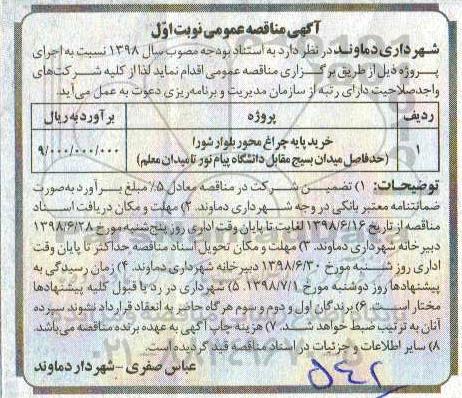 آگهی مناقصه عمومی نوبت اوّل
شهرداری دماوند در نظر دارد به استناد بودجه مصوب سال ۱۳۹۸ نسبت به اجرای
پروژه ذیل از طریق برگزاری مناقصه عمومی اقدام نماید لذا از کلیه شرکت‌های
واجدصلاحیت دارای رتبه از سازمان مدیریت و برنامه‌ریزی دعوت به عمل می‌آید.
ردیف پروژه برآورد به ریال
۱ خرید پایه چراغ محور بلوار شورا ۹/۰۰۰/۰۰۰/۰۰۰
(حدفاصل میدان بسیج مقابل دانشگاه پیام نور تا میدان معلم)
توضیحات: ۱) تضمین شرکت در مناقصه معادل ۵٪ مبلغ برآورد به‌صورت
ضمانتنامه معتبر بانکی در وجه شهرداری دماوند. ۲) مهلت و مکان دریافت اسناد
مناقصه از تاریخ ۱۳۹۸/۶/۱۶ لغایت تا پایان وقت اداری روز پنج‌شنبه مورخ ۱۳۹۸/۶/۲۸
دبیرخانه شهرداری دماوند. ۳) مهلت و مکان تحویل اسناد مناقصه حداکثر تا پایان وقت
اداری روز شنبه مورخ ۱۳۹۸/۶/۳۰ دبیرخانه شهرداری دماوند. ۴) زمان رسیدگی به
پیشنهادها روز دوشنبه مورخ ۱۳۹۸/۷/۱. ۵) شهرداری در رد یا قبول کلیه پیشنهادها
مختار است. ۶) برندگان اول و دوم و سوم هرگاه حاضر به انعقاد قرارداد نشوند سپرده
آنان به ترتیب ضبط خواهد شد. ۷) هزینه چاپ آگهی به عهده برنده مناقصه می‌باشد.
۸) سایر اطلاعات و جزئیات در اسناد مناقصه قید گردیده است.
عباس صفری - شهردار دماوند